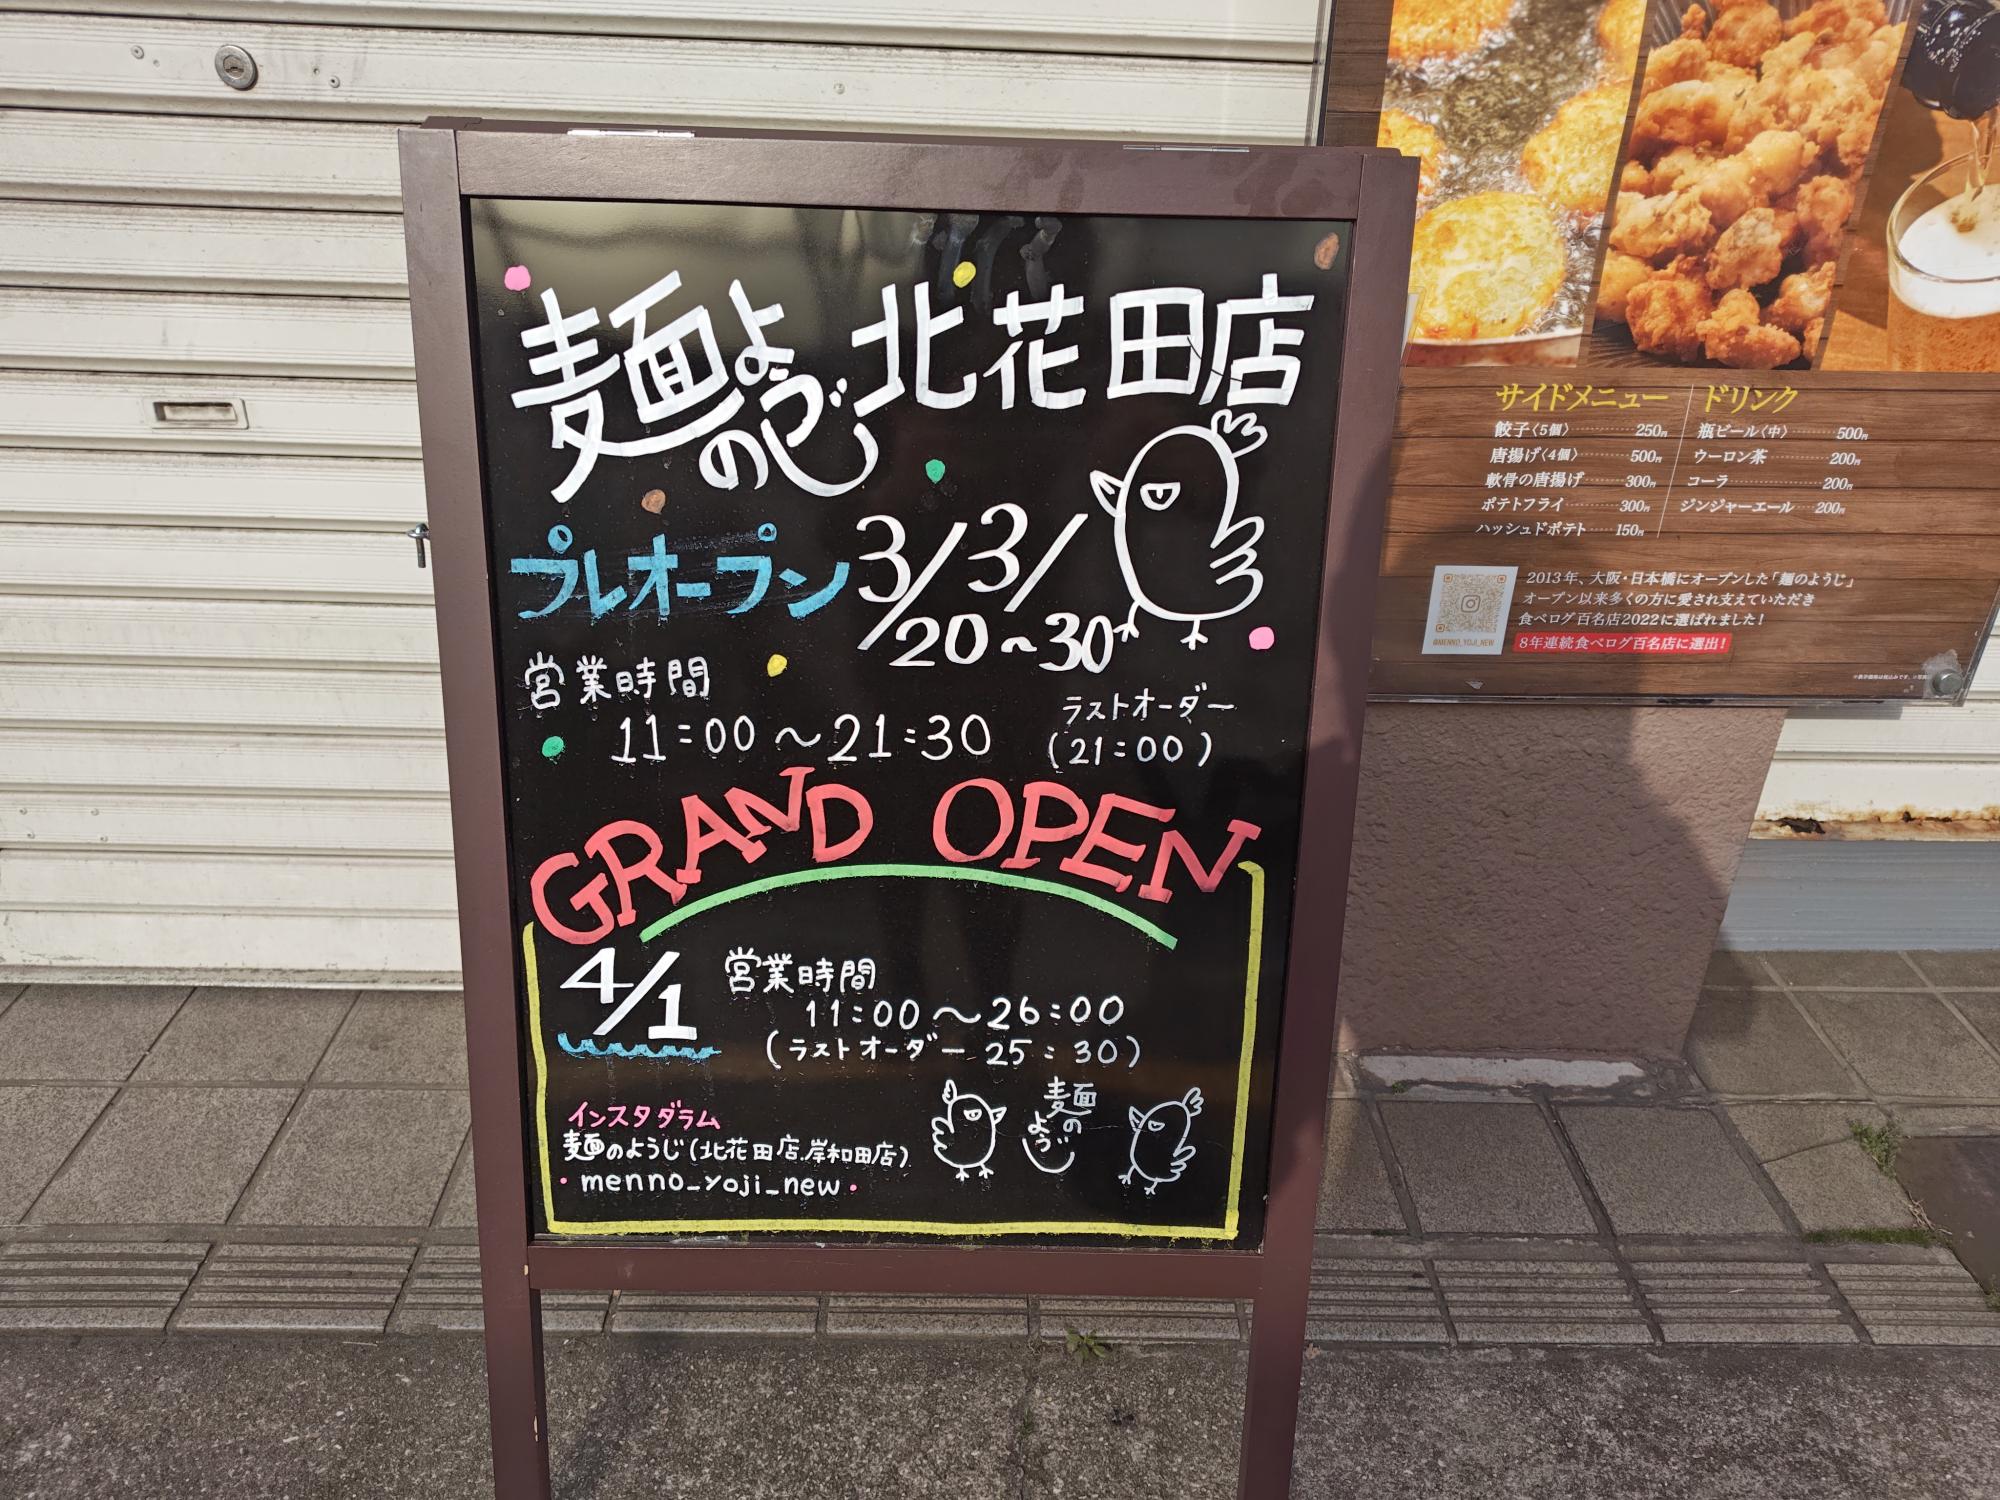 麺のようじ 北花田店
プレオープン 3/20～3/30
営業時間
11:00～21:30
ラストオーダー
(21:00)
GRAND OPEN
4/1
営業時間
11:00～26:00
(ラストオーダー 25:30)
インスタグラム
麺のようじ(北花田店.岸和田店)
・menno_yoji_new・
麺のようじ
サイドメニュー
餃子〈5個〉 250円
唐揚げ〈4個〉 500円
軟骨の唐揚げ 300円
ポテトフライ 300円
ハッシュドポテト 150円
ドリンク
瓶ビール〈中〉 500円
ウーロン茶 200円
コーラ 200円
ジンジャーエール 200円
@MENNO_YOJI_NEW
2013年、大阪・日本橋にオープンした「麺のようじ」
オープン以来多くの方に愛され支えていただき
食べログ百名店2022に選ばれました!
8年連続食べログ百名店に選出!